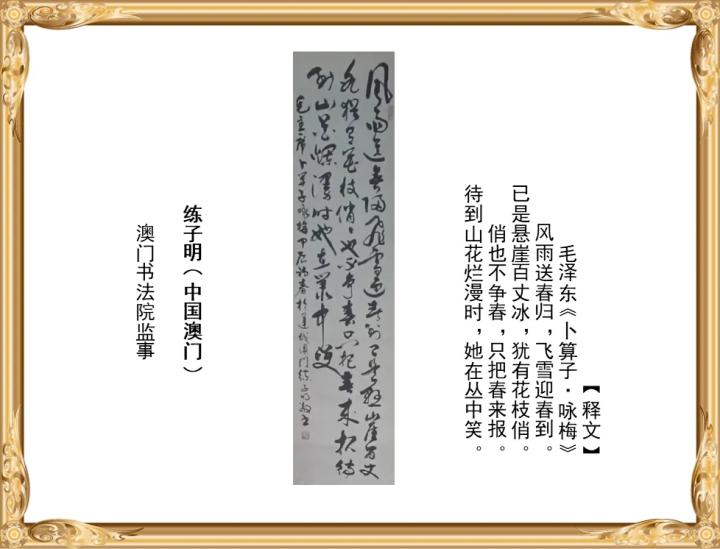 【释文】
毛泽东《卜算子·咏梅》
风雨送春归，飞雪迎春到。
已是悬崖百丈冰，犹有花枝俏。
俏也不争春，只把春来报。
待到山花烂漫时，她在丛中笑。
風雨送春归飞雪迎春到已是悬崖百丈
冰犹有花枝俏俏也不争春只把春来报待
到山花烂漫时她在丛中笑
毛主席卜算子咏梅甲辰初春於莲城澳门练子明敬书
练子明（中国澳门）
澳门书法院监事